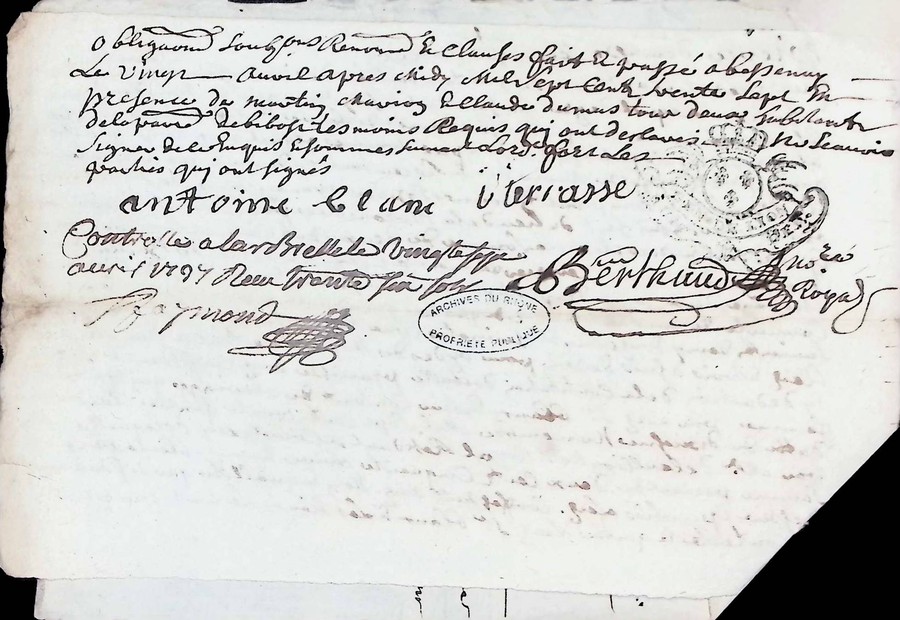 obligaonś soubzons Renonś & Clauses fait & passé a bessenay
Le vingt avril apres midy Mil sept Cent trente sept En
presence de martin chavion & Claude dumas tous deux habitants
de la parr̃ de bibost tesmoins Requis qui ont declaré ne scavoir
signer de ce Enquis & sommes suivant Lord. fort Les
parties qui ont signés
antoine blanc i terrasse
Controllé a larBrelle le vingt sept
avril 1737 Receu trente six sols
Berthaud no.re
Royal
Raymond
ARCHIVES DU RHONE
PROPRIÉTÉ PUBLIQUE